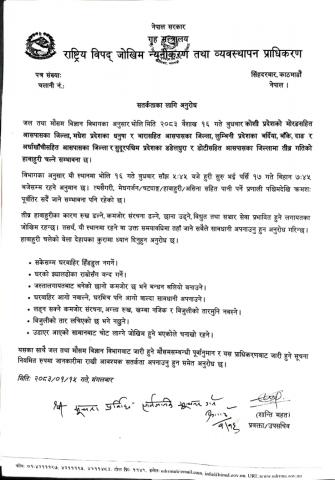 नेपाल सरकार
गृह मन्त्रालय
राष्ट्रिय विपद् जोखिम न्यूनीकरण तथा व्यवस्थापन प्राधिकरण
पत्र संख्याः
चलानी नं.:
सिंहदरबार, काठमाडौं
नेपाल ।
सतर्कताका लागि अनुरोध
जल तथा मौसम विज्ञान विभागका अनुसार भोलि मिति २०८३ वैशाख १६ गते बुधवार कोशी प्रदेशको मोरङसहित
आसपासका जिल्ला, मधेश प्रदेशका धनुषा र बारासहित आसपासका जिल्ला, लुम्बिनी प्रदेशका बर्दिया, बाँके, दाङ र
अर्घाखाँचीसहित आसपासका जिल्ला र सुदूरपश्चिम प्रदेशका डडेलधुरा र डोटीसहित आसपासका जिल्लामा तीव्र गतिको
हावाहुरी चल्ने सम्भावना छ ।
विभागका अनुसार यी स्थानमा भोलि १६ गते बुधवार साँझ ५:४५ बजे हुरी सुरु भई पर्सि १७ गते बिहान ७:४५
बजेसम्म रहने अनुमान छ । त्यसैगरी, मेघगर्जन/चट्याङ/हावाहुरी/असिना सहित पानी पर्ने प्रणाली पश्चिमदेखि क्रमशः
पूर्वतिर सर्दै जाने सम्भावना पनि रहेको छ ।
तीव्र हावाहुरीका कारण रुख ढल्ने, कमजोर संरचना ढल्ने, छाना उड्ने, विद्युत तथा सञ्चार सेवा प्रभावित हुने लगायतका
जोखिम रहन्छ । तसर्थ, यी स्थानमा रहने वा उक्त समयावधिमा तहाँ जाने सबैले सावधानी अपनाउनु हुन अनुरोध गरिन्छ ।
हावाहुरी चलेको बेला देहायका कुरामा ध्यान दिनुहुन अनुरोध छ ।
• सकेसम्म घरबाहिर हिँडडुल नगर्ने।
• घरको झ्यालढोका राम्रोसँग बन्द गर्ने।
• जस्तालगायतबाट बनेको छानो कमजोर छ भने बन्धन बलियो बनाउने।
• घरबाहिर आगो नबाल्ने, घरभित्र पनि आगो बाल्दा सावधानी अपनाउने।
• लड्न सक्ने कमजोर संरचना, अग्ला रुख, खम्बा नजिक र बिजुलीको तारमुनि नबस्ने।
• बिजुलीको तार लचिएको छ भने नछुने।
• उडाएर आएको सामानबाट चोट लाग्ने जोखिम हुने भएकोले चनाखो रहने।
यसका साथै जल तथा मौसम विज्ञान विभागबाट जारी हुने मौसमसम्बन्धी पूर्वानुमान र यस प्राधिकरणबाट जारी हुने सूचना
नियमित रुपमा जानकारीमा राखी आवश्यक सतर्कता अपनाउनु हुन समेत अनुरोध छ ।
मितिः २०८३/०१/१५ गते, मंगलबार
(शान्ति महत)
प्रवक्ता/उपसचिव